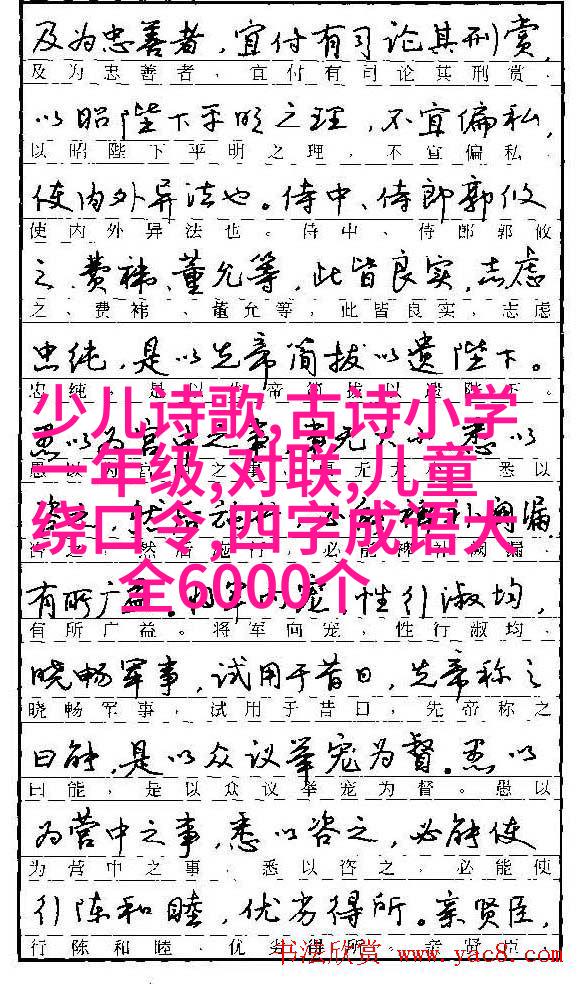 及为忠善者，宜付有司论其刑赏，
及为忠善者，宜付有司论其刑赏，
以昭陛下平明之理，不宜偏私，
以昭陛下平明之理，不宜偏私，
使内外异法也。侍中、侍郎郭攸
使内外异法也。侍中、侍郎郭攸
之、费祎、董允等，此皆良实，志虑
之、费祎、董允等，此皆良实，志虑
忠纯，是以先帝简拔以遗陛下。
忠纯。是以先帝简拔以遗陛下。
少儿诗歌,古诗小学
愚以为宫中之事，事无大小，悉以
一年级,对联,儿童
愚以为 悉以
绕口令,四字成语大
咨之，然后施行，必能裨补阙漏，
咨之，然后施行，必能裨补阙漏，
全6000个
有所广益。将军向宠，性行淑均，
有所广益。将军向宠，性行淑均，
晓畅军事，试用于昔日，先帝称之
晓畅军事，试用于昔日，先帝称之
曰能，是以众议举宠为督。愚以
曰能，是以众议举宠为督。愚以
为营中之事，悉以咨之，必能使
为营中之事，悉以咨之，必能使
行陈和睦，优劣得所。亲贤臣，
行陈和睦，优劣得所。亲贤臣，
书法欣赏 www.yac8.com